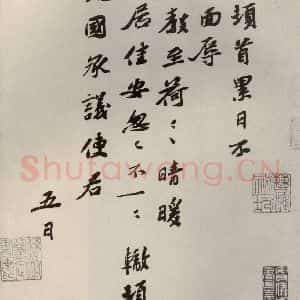 頓首累日不
面辱
教至荷〻暗暖
居佳安忽〻不一〻轍頓
國承議使君
五日
Shufawang.CN